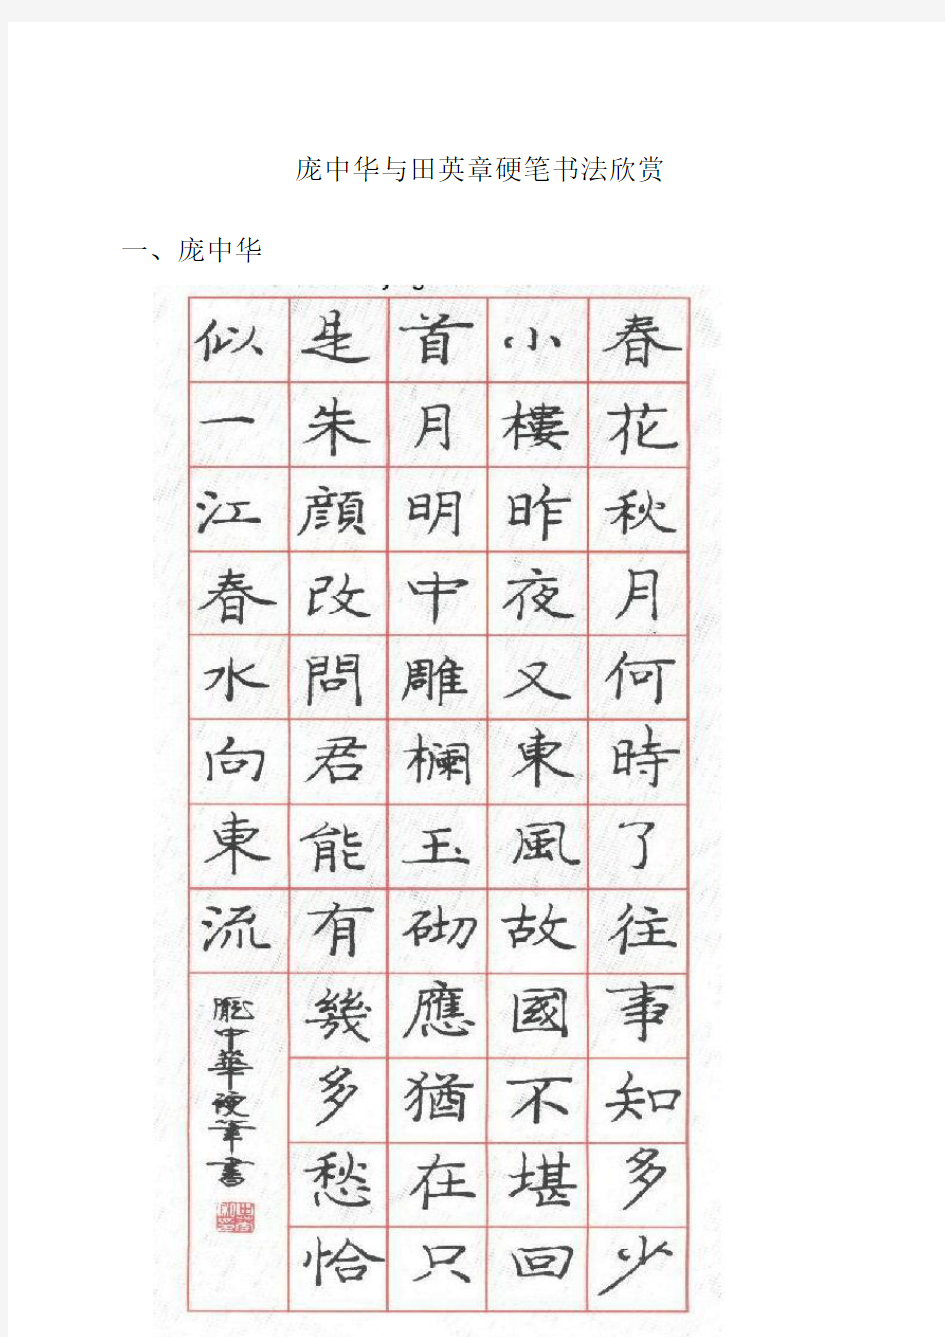 庞中华与田英章硬笔书法欣赏
一、庞中华
春花秋月何時了往事知多少
小樓昨夜又東風故國不堪回
首月明中雕欄玉砌應猶在只
是朱顔改問君能有幾多愁恰
似一江春水向東流
龐中華硬筆書